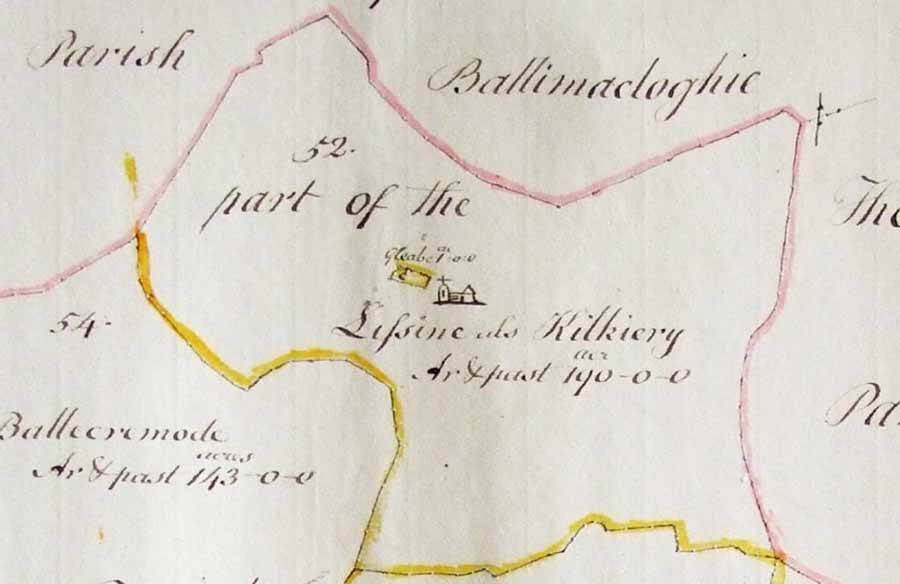 Parish
Ballimacloghie
52.
part of the
The
Gleabe 1-0-0
ac
54.
Lissine als Kilkiery
acr
Ar & past 190-0-0
Ballecremode
acres
Ar & past 143-0-0